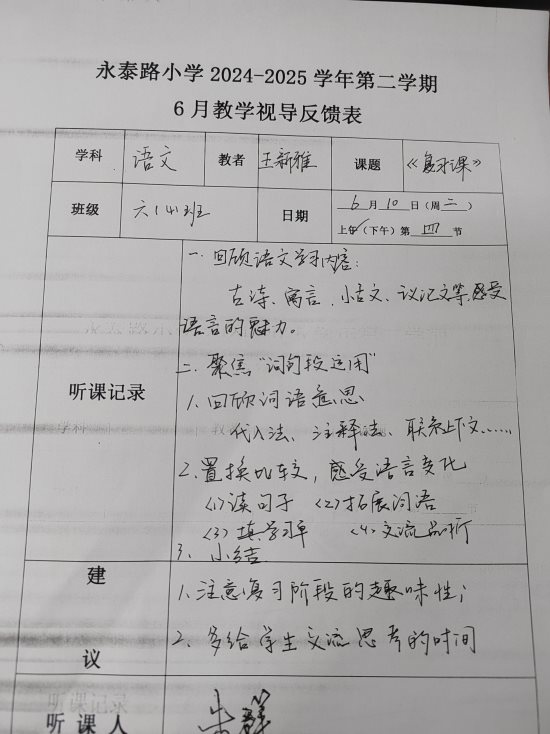 永泰路小学 2024-2025 学年第二学期
6 月教学视导反馈表
学科 语文 教者 王新雅 课题 《复习课》
班级 六(4)班 日期 6 月 10 日（周二）
上午√（下午）第 四 节
听课记录
一、回顾语文学习内容：
古诗、寓言、小古文、议论文等,感受
语言的魅力。
二、聚焦“词句段运用”
1、回顾词语意思
代入法、注释法、联系上下文……
2、置换比较，感受语言变化
(1)读句子 (2)拓展词语
(3)填学习单 (4)交流品析
3、小结
建议
1、注意复习阶段的趣味性；
2、多给学生交流思考的时间
听课人 朱群